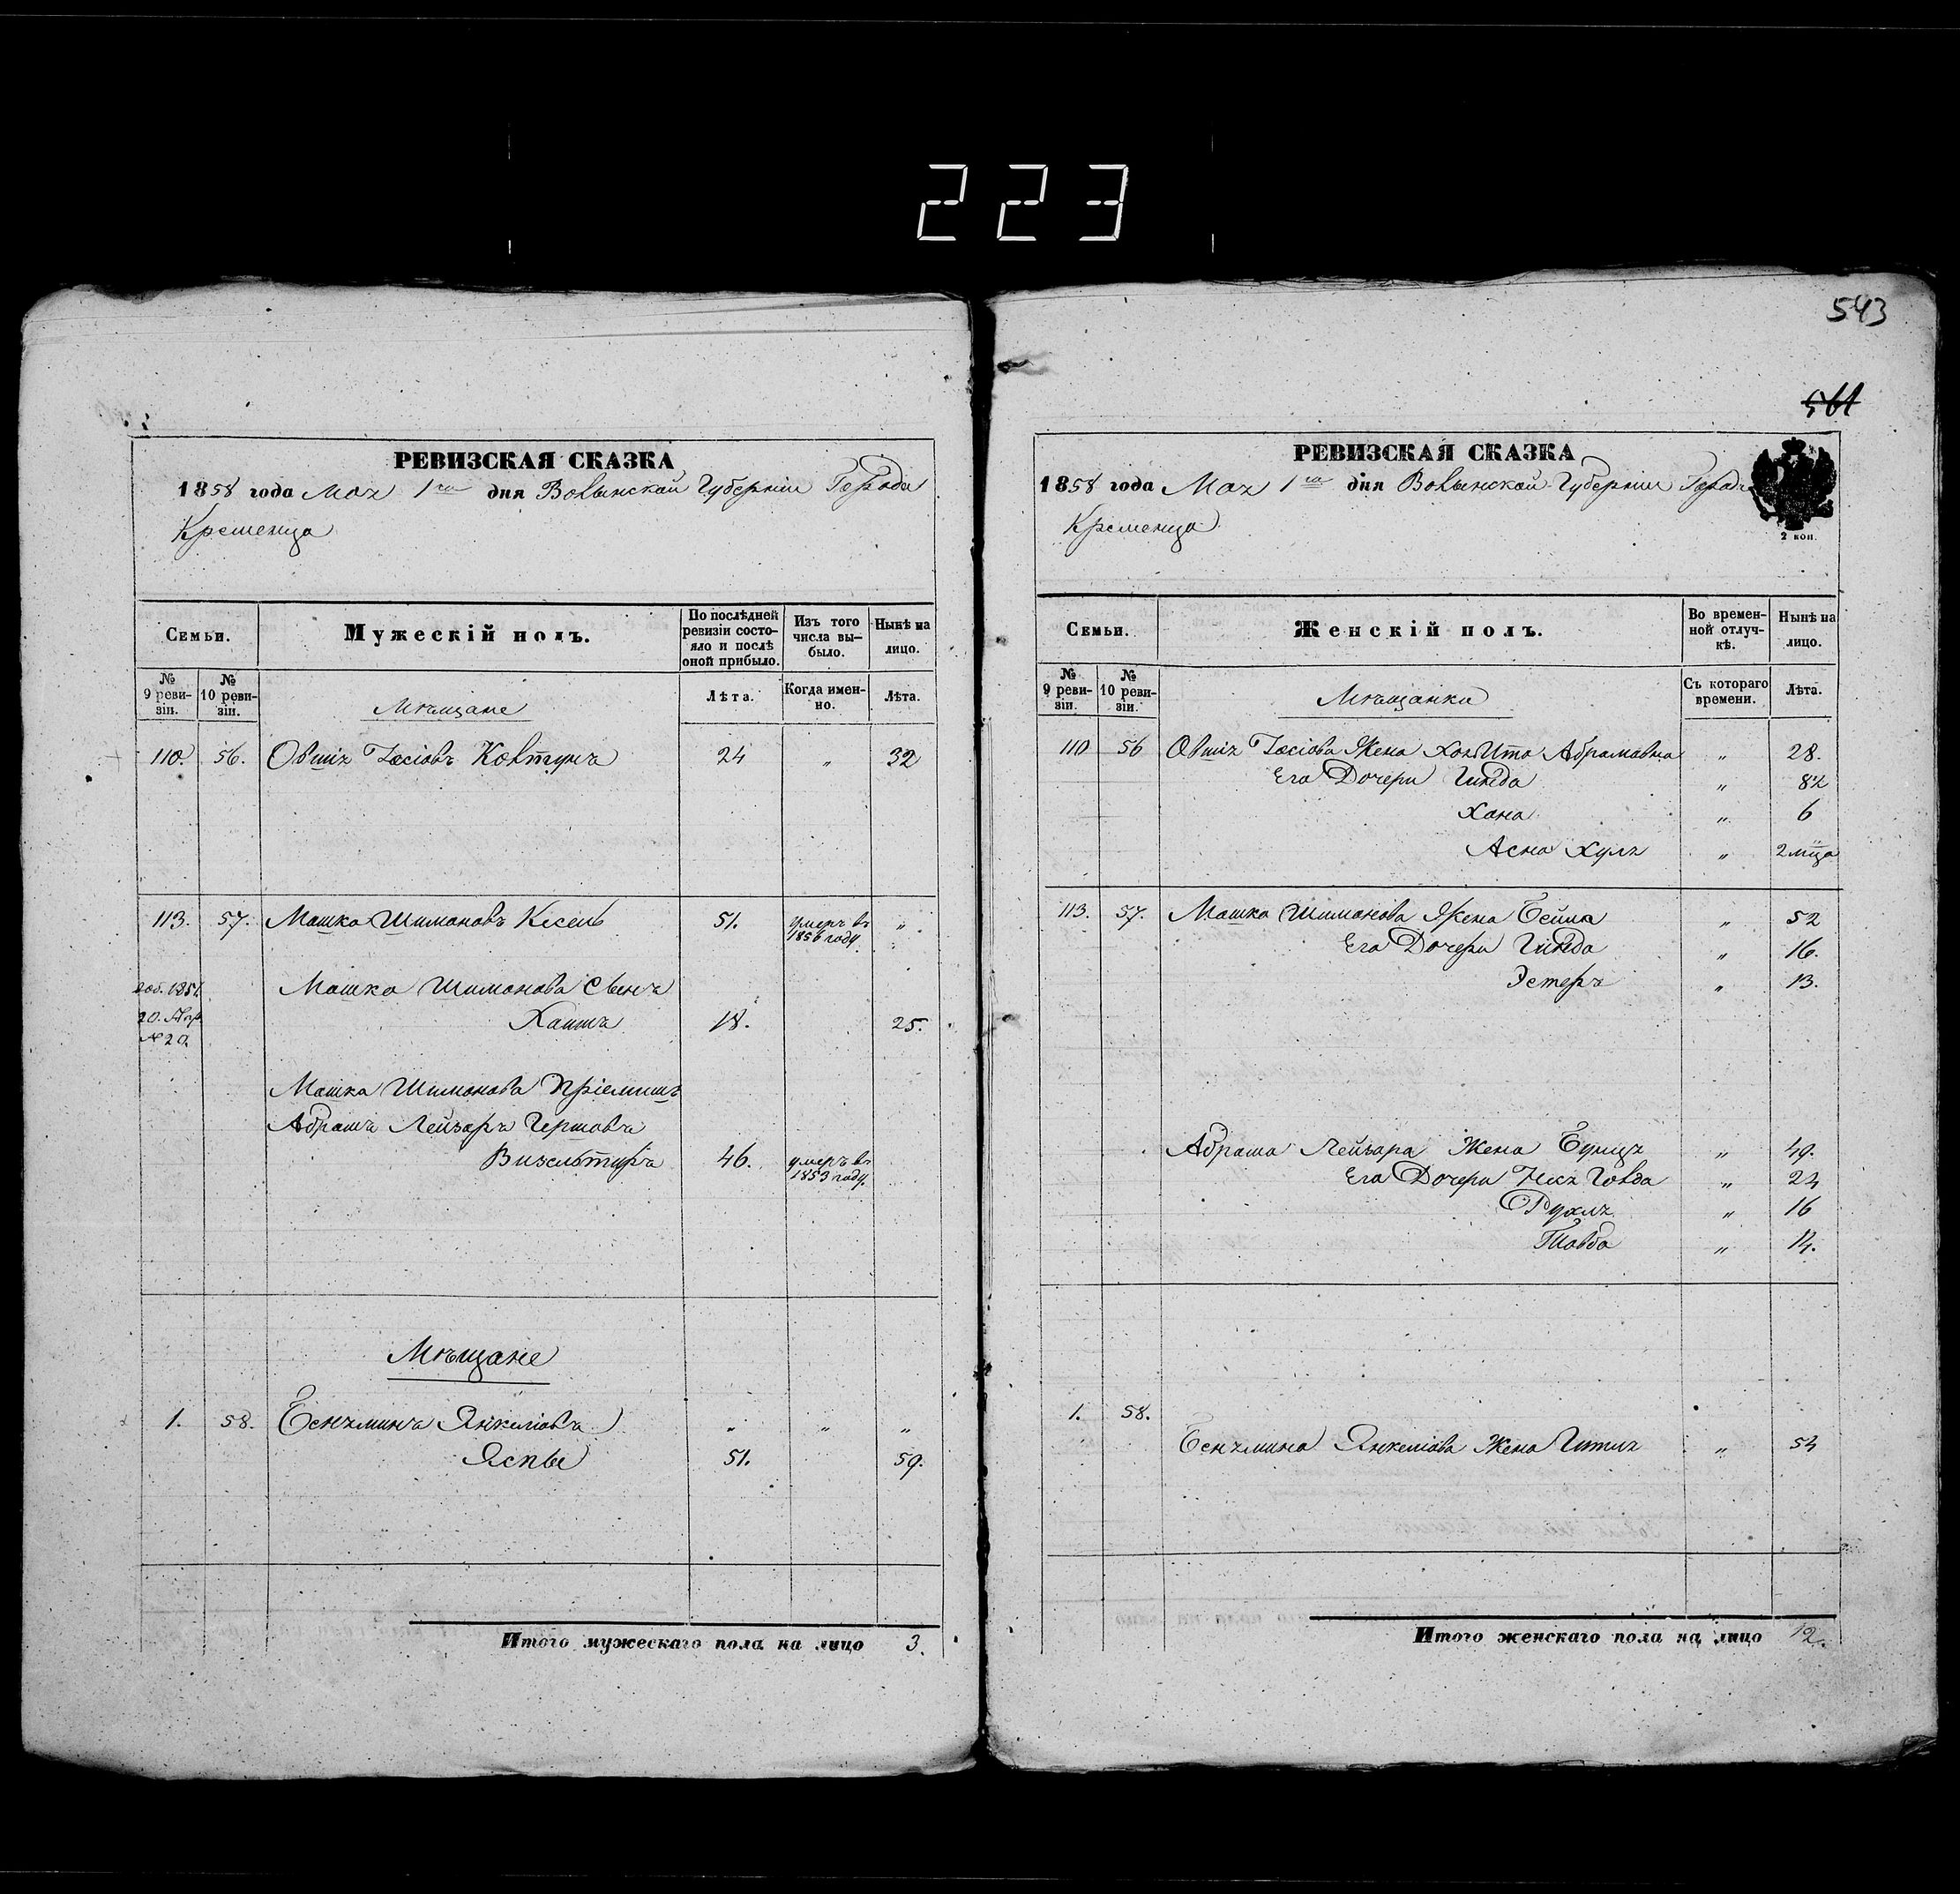 223
РЕВИЗСКАЯ СКАЗКА
1858 года Мая 1го дня Волынской Губерніи Города
Кременца
Семьи.
Мужескій полъ.
По послѣдней ревизіи состояло и послѣ оной прибыло.
Изъ того числа выбыло.
Нынѣ на лицо.
№ 9 ревизіи.
№ 10 ревизіи.
Мѣщане
Лѣта.
Когда именно.
Лѣта.
110. 56. Овшія Іосіовъ Ковтунъ 24 „ 32
113. 57. Мошко Шимоновъ Кесель 51. умеръ въ 1856 году „
доб. 1851. Мошка Шимонова Сынъ
20. Апр. Хаимъ 18. 25.
№ 20.
Мошка Шимонова Пріемышъ
Абрамъ Лейзаръ Гершовъ
Визельтиръ 46. умеръ въ 1853 году.
Мѣщане
1. 58. Беньминъ Янкеліовъ „ „ „
Яспы 51. 59.
Итого мужескаго пола на лицо 3.
543
561
РЕВИЗСКАЯ СКАЗКА
1858 года Мая 1го дня Волынской Губерніи Города
Кременца
2 коп.
Семьи.
Женскій полъ.
Во временной отлучкѣ.
Нынѣ на лицо.
№ 9 ревизіи.
№ 10 ревизіи.
Мѣщанки
Съ котораго времени.
Лѣта.
110 56 Овшія Іосіова Жена Хая Ита Абрамовна „ 28.
Его Дочери Гинда „ 8½
Хана „ 6
Асна Хуля „ 2 мца
113. 57. Мошка Шимонова Жена Бейла „ 52
Его Дочери Гинда „ 16.
Эстеръ „ 13.
Абрама Лейзара Жена Бунця „ 49.
Его Дочери Неся Говда „ 24
Рухля „ 16
Товба „ 14.
1. 58.
Беньмина Янкеліова Жена Гитля „ 54
Итого женскаго пола на лицо 12.